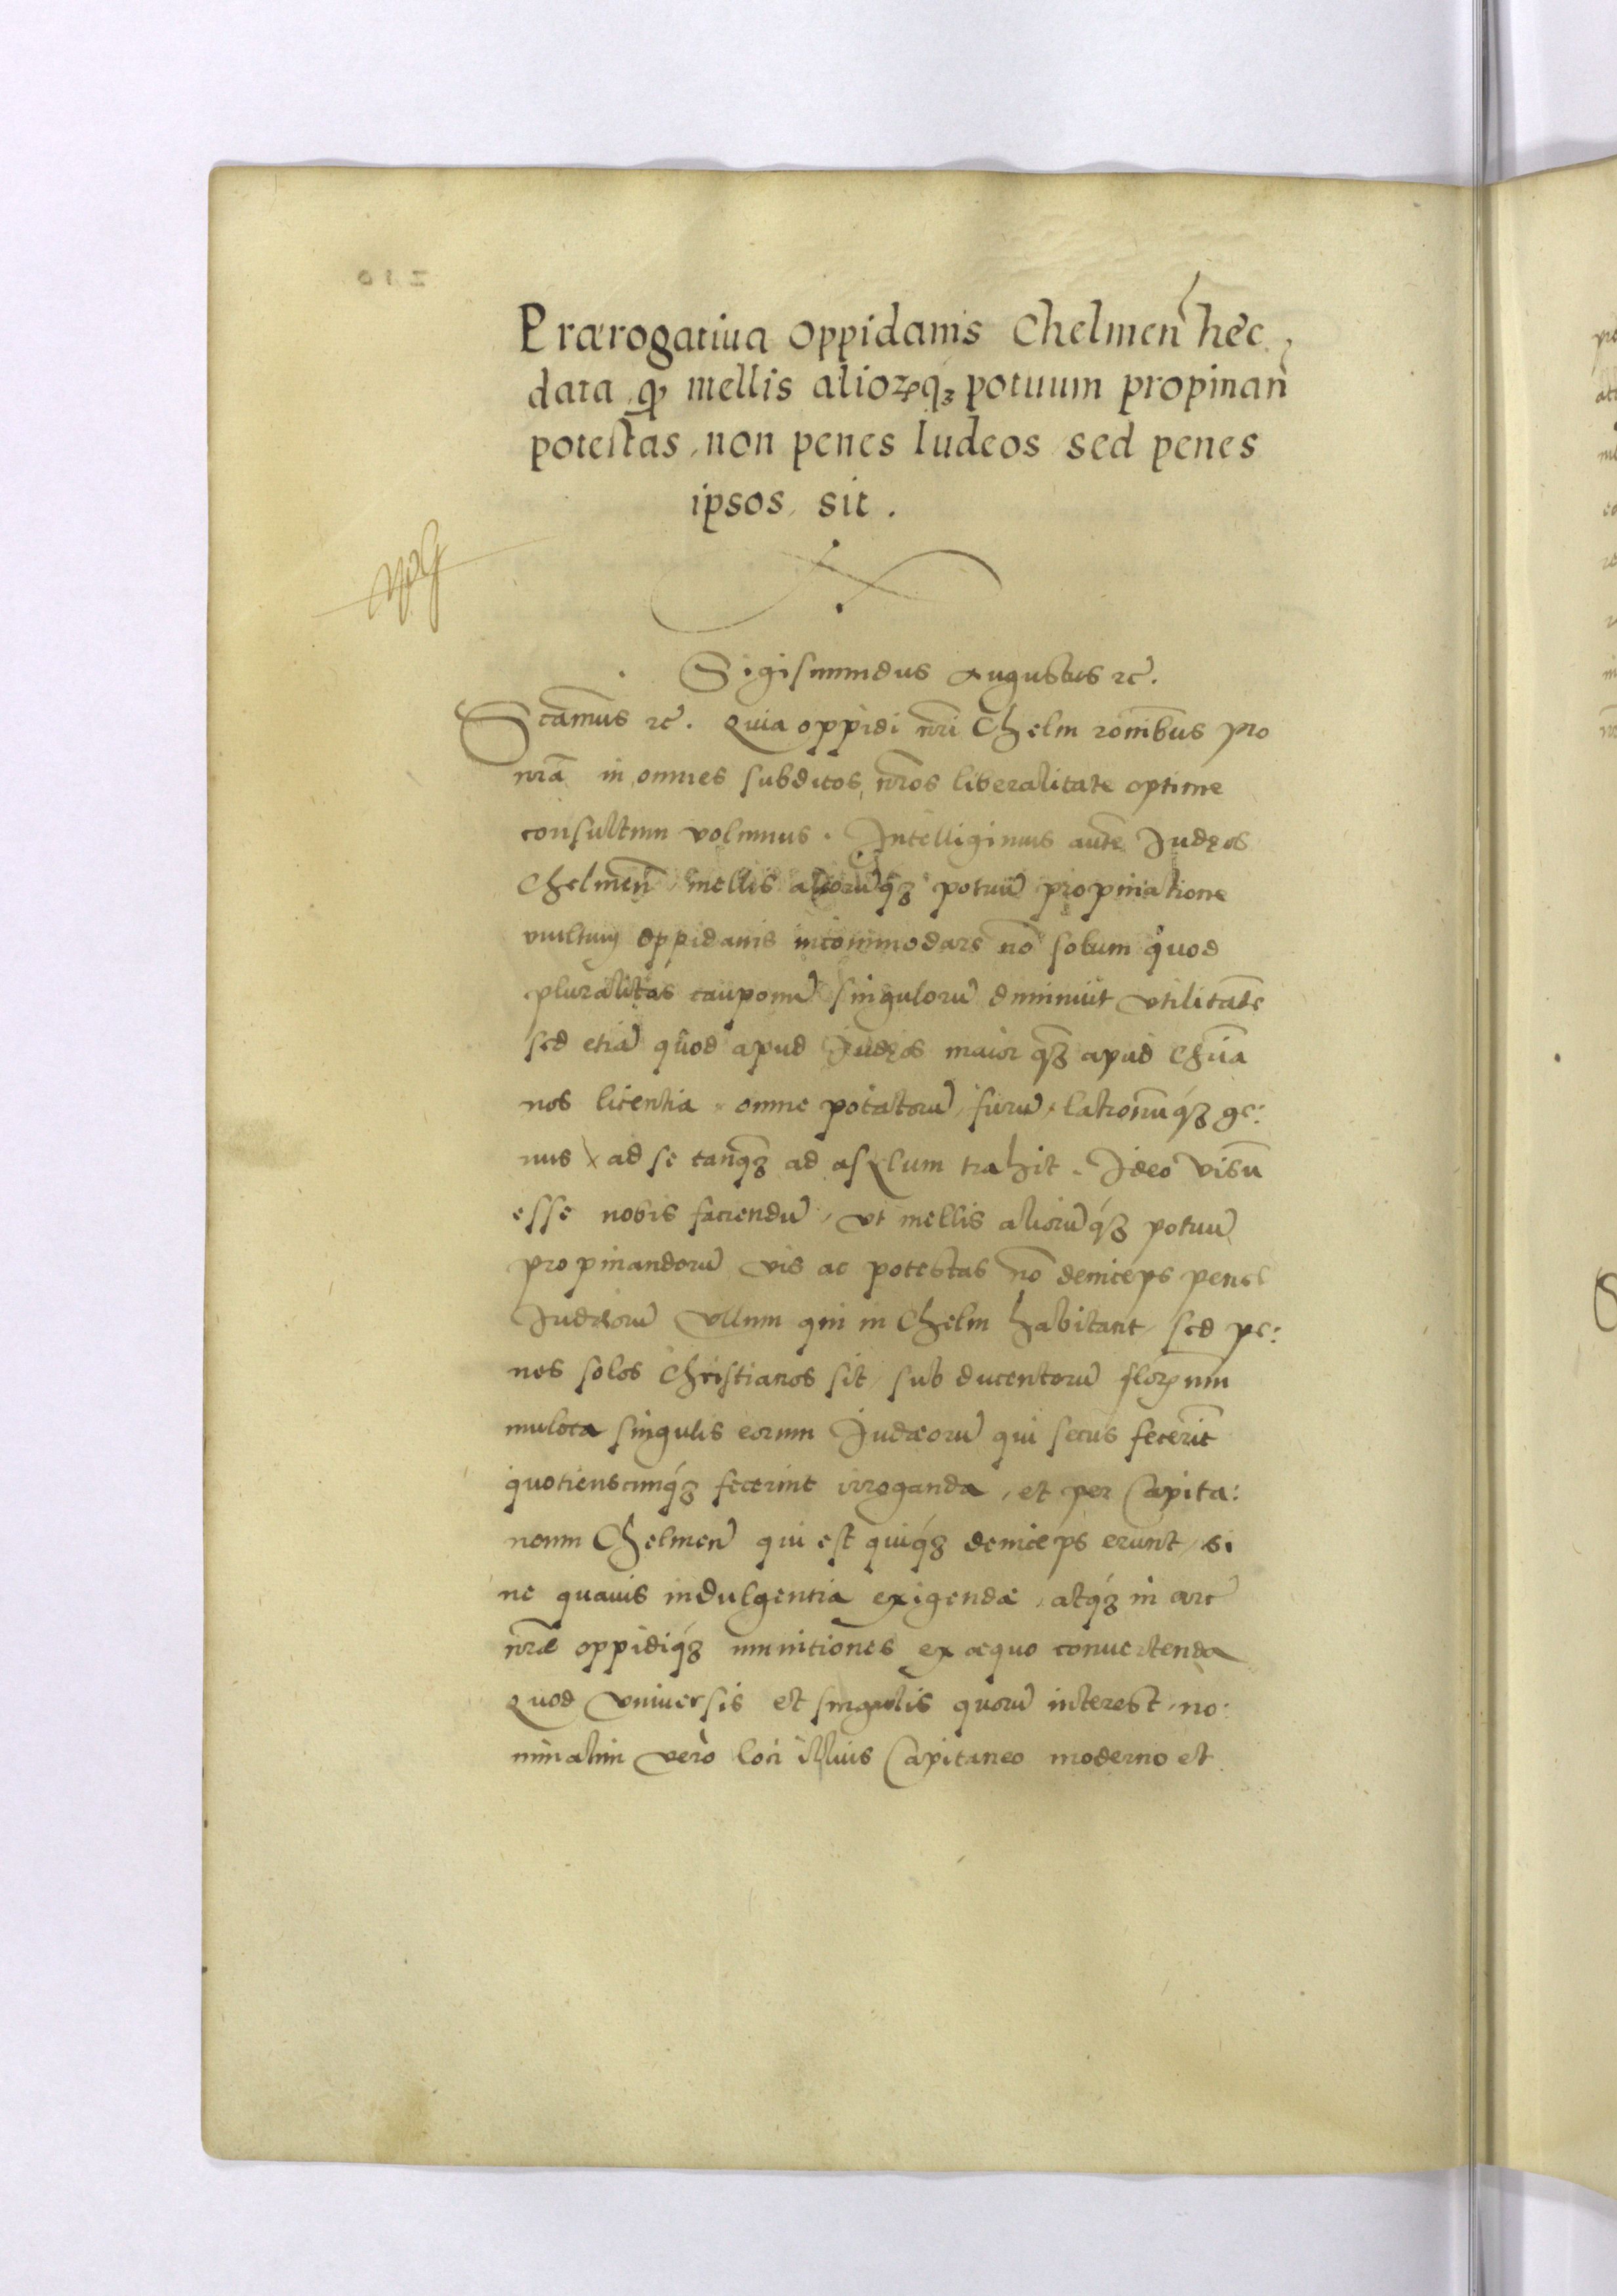 Prærogatiua oppidanis Chelmen̄ hec
data, qp mellis alioꝝq́ꝫ potuum propinan̄
potestas, non penes Iudeos sed penes
ipsos, sit.
Sigismundus Augustus ꝛc̄.
Sc̄amus ꝛc̄. Quia oppidi nr̄i Chelm rōnibus pro
nr̄a in omnes subditos nr̄os liberalitate optime
consultum volumus. Intelligimus aut̄e Judęos
Chelmen̄ mellis aliorū́qꝫ potuū propinatione
multum oppidanis incommodare nō solum quod
pluralitas cauponū singulorū diminuit vtilitatē
sed etiā quod apud Judęos maior q̄ꝫ apud Chr̄ia
nos licentia, omne potatorū, furū, latronūq́ꝫ ge:
nus ad se tanq̄ꝫ ad asylum trahit. Ideo visū
esse nobis faciendū, vt mellis aliorūq́ꝫ potuū
propinandorū vis ac potestas nō deinceps penes
Judæorū vllum qui in Chelm habitant, sed pe:
nes solos Christianos sit, sub ducentorū floꝝ num
mulcta singulis eorum Judæorū qui secus fecerīt
quotienscunq́ꝫ fecerint irroganda, et per Capita:
neum Chelmen̄ qui est quiq́ꝫ deinceps erunt, si
ne quauis indulgentia exigendæ, atq́ꝫ in arc̄
nr̄æ oppidiq́ꝫ munitiones ex æquo conuertenda
Quod vniuersis et singulis quorū interest, no:
minatim vero loci illius Capitaneo moderno et